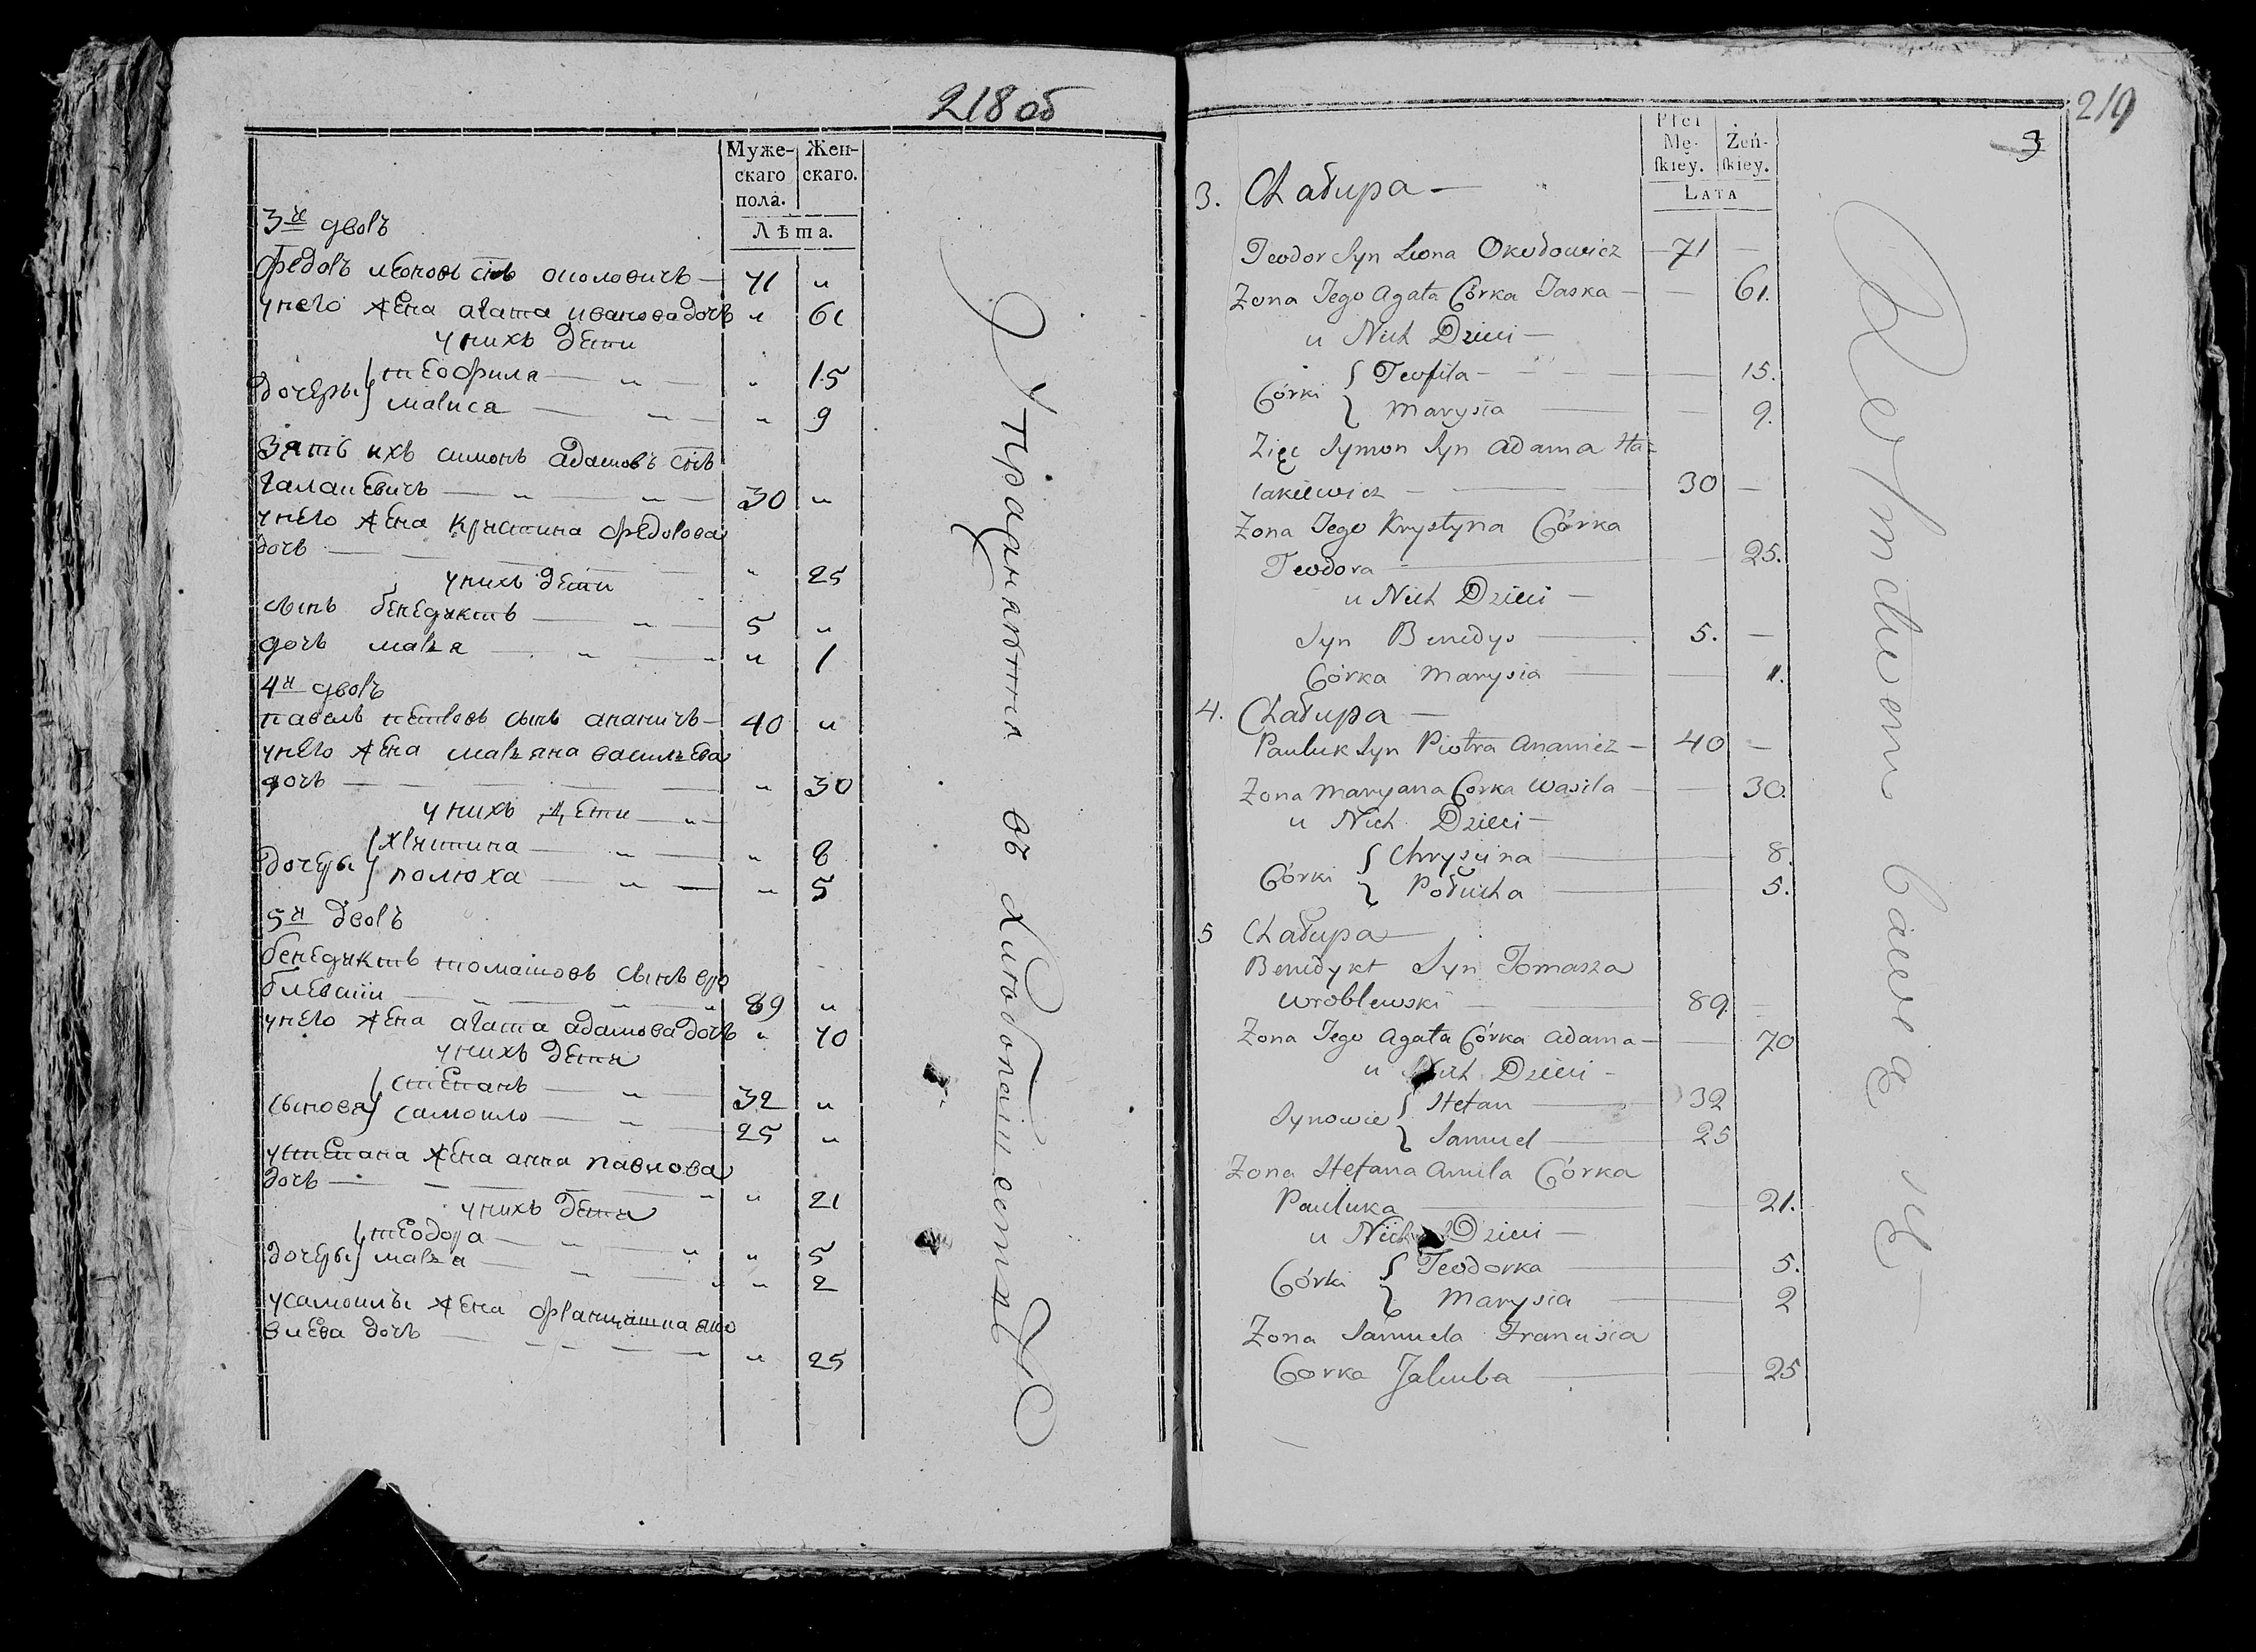 218 об
Муже-
скаго
пола.
Жен-
скаго.
Лѣта.
3й дворъ
Федоръ леоновъ снъ околовичъ — 71 "
у него жена агата иванова дочь " 61
у нихъ дети
дочеры теофила — " — " 15
марися — " — " 9
зять ихъ симонъ адамовъ снъ
галакевичъ — " — " — 30 "
у него жена кристина федорова
дочь — " 25
у нихъ дети
сынъ бенедиктъ — " — 5 "
дочь марья — " — " 1
4й дворъ
павелъ петровъ сынъ ананичъ — 40 "
у него жена марьяна васильева
дочь — " 30
у нихъ дети — " —
дочеры христина — " — " 8
полюха — " — " 5
5й дворъ
бенедиктъ томашовъ сынъ вро
блевский — " 89 "
у него жена агата адамова дочь " 70
у нихъ дети
сыновя степанъ — " — 32 "
самойло — " — 25 "
у степана жена анна павлова
дочь — " 21
у нихъ дети
дочеры теодора — " — " 5
марья — " — " 2
у самойлы жена францишка яко
влева дочь — " 25
Упразднѣнныя въ
219
3
Płci
Mę-
ſkiey.
Żeń-
ſkiey.
LATA
3. Chałupa —
Teodor Syn Leona Okołowicz — 71 —
Zona Jego Agata Córka Jaska — — 61.
u Nich Dzieci —
Córki Teofila — — 15.
Marysia — — 9.
Zięc Symon Syn Adama Ha=
lakiewicz — 30 —
Zona Jego Krystyna Córka
Teodora — — 25.
u Nich Dzieci —
Syn Benedys — 5. —
Córka Marysia — — 1.
4. Chałupa —
Pauluk Syn Piotra Ananicz — 40 —
Zona Maryana Corka Wasila — — 30.
u Nich Dzieci —
Córki Chrysina — 8.
Połucha — 5.
5 Chałupa —
Benedykt Syn Tomasza
Wroblewski — 89. —
Zona Jego Agata Córka Adama — — 70
u Nich Dzieci —
Synowie Stefan — 32
Samuel — 25
Zona Stefana Anula Córka
Pauluka — — 21.
u Nich Dzieci —
Córki Teodorka — 5.
Marysia — 2
Zona Samuela Francisia
Corka Jakuba — — 25